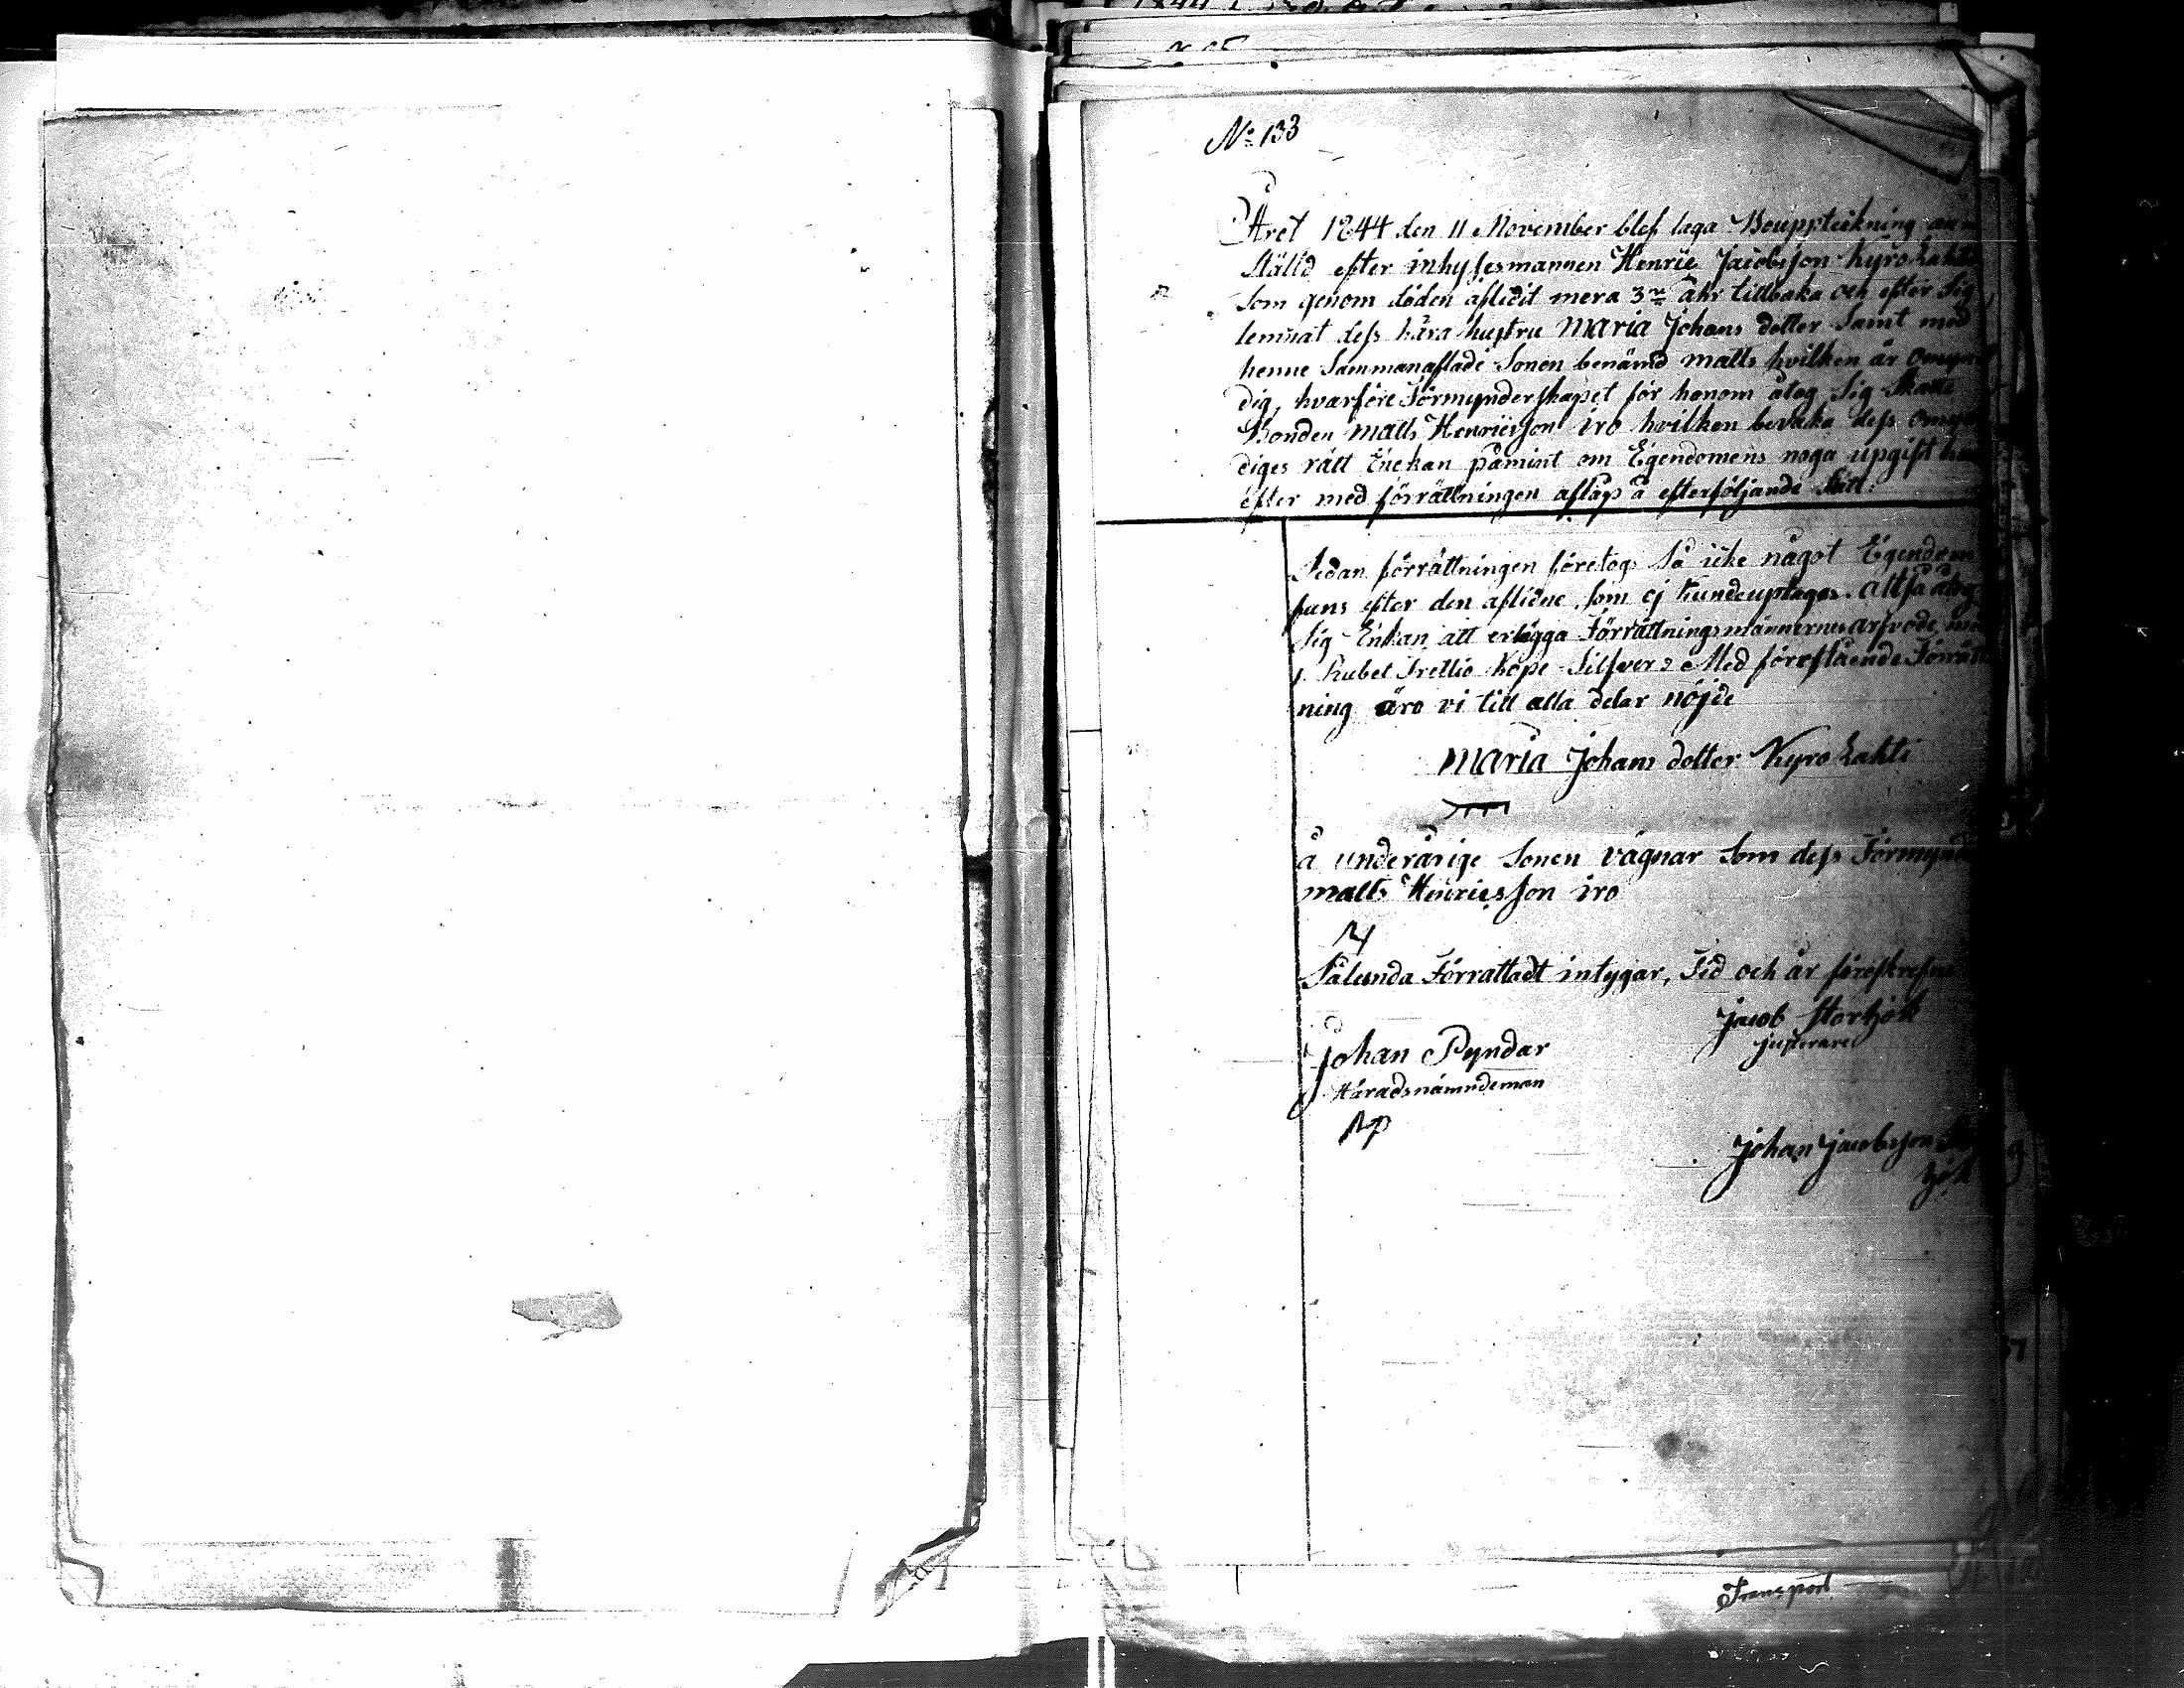 No 133
Året 1844 den 11 November blef laga Bouppteckning an
ställd efter inhysesmannen Henric Jacobsson Kyrö Lahti
som genom döden aflidit mera 3ne åhr tillbaka och efter Sig
lemnat dess kära hustru Maria Johans dotter Samt med
henne Sammanaflade Sonen benämd Matts hvilken är Omyn
dig, hvarföre Förmynderskapet för honom åtog Sig Skatte
Bonden Matts Henricsson iro hvilken bevaka dess Omyn
diges rätt Enckan påmint om Egendomens noga upgift
efter med förrättningen aflåp å efterföljande Sätt:
Sedan förrättningen företogs Så icke något Egendom
fans efter den aflidne, som ej Kunde uptagas. Altså åtog
Sig Enkan att erlägga Förrättningsmännernes arfvode med
1 Rubel Trettio Kope Silfver. Med föreståendeFörrätt
ning äro vi till alla delar nöjde
Maria Johans dotter Kyro Lahti
å underårige Sonen vägnar Som dess Förmynd
Matts Henricsson iro
Sålunda Förrättadt intygar, Tid och år föreskrefne
Jacob Storhök
justerare
Johan Pyndar
Häradsnämndeman
Johan Jacobsson
Transport